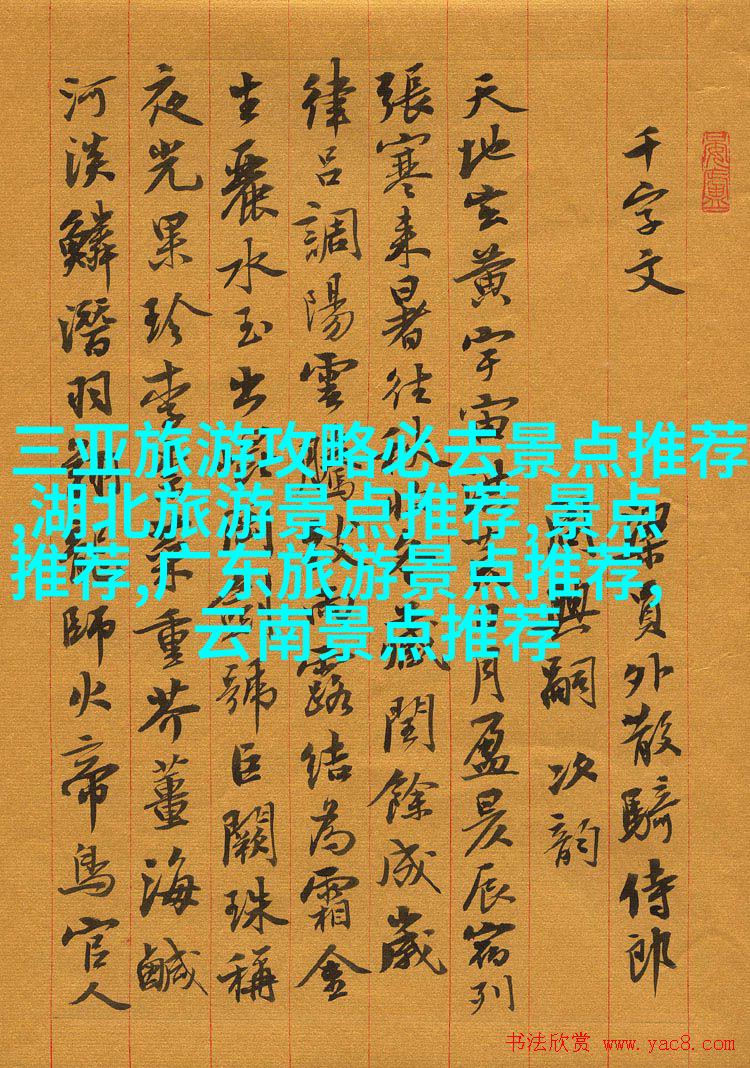 千字文 梁員外散騎侍郎
興嗣次韵
天地玄黄宇宙洪荒日月盈昃辰宿列
張寒来暑往秋收冬藏閏餘成歲
律吕調陽雲騰致雨露结為霜金
生麗水玉出崑岡劍號巨闕珠稱
夜光果珍李柰菜重芥薑海鹹
河淡鱗潛羽翔龍師火帝鳥官人
三亚旅游攻略必去景点推荐
,湖北旅游景点推荐,景点
推荐,广东旅游景点推荐,
云南景点推荐
书法欣赏 www.yac8.com